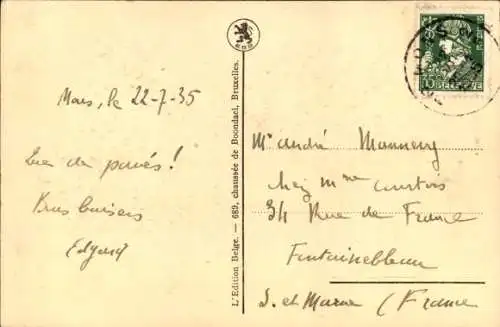 Mons, le 22-7-35
Que de pavés !
Bons baisers
Edgard
L'Edition Belge. — 689, chaussée de Boondael, Bruxelles.
10 BELGIE
Mr André
chez Mme Courtois
34 Rue de France
Fontainebleau
S. et Marne (France